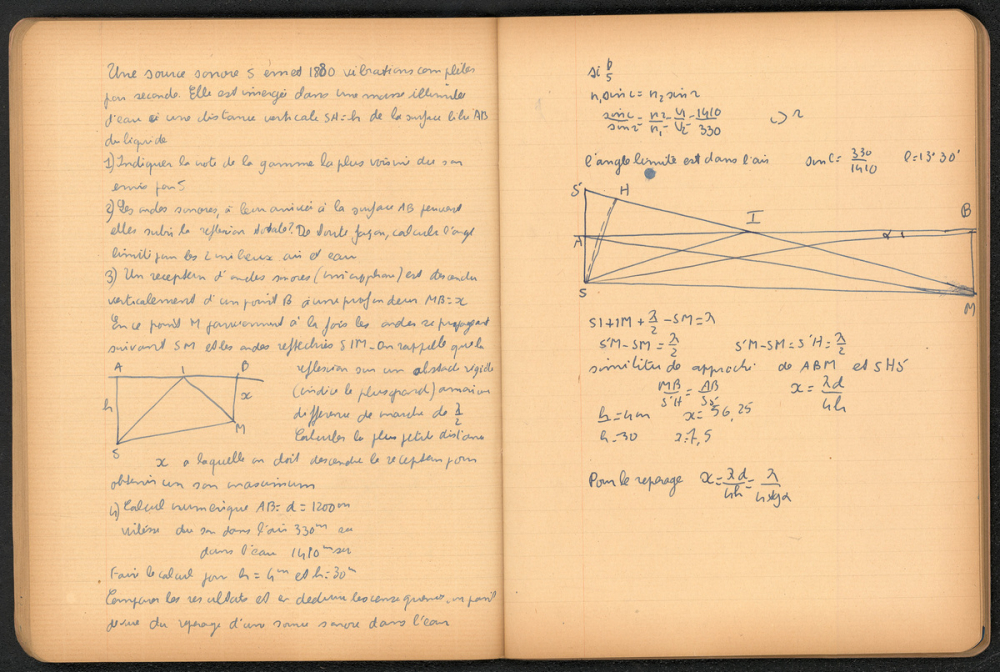 Une source sonore S émet 1880 vibrations complètes
par seconde. Elle est immergée dans une masse illimitée
d'eau à une distance verticale SH=h de la surface libre AB
du liquide
1) Indiquer la note de la gamme la plus voisine du son
émis par S
2) Les ondes sonores, à leur arrivée à la surface AB peuvent
elles subir la réflexion totale? De toute façon, calculer l'angle
limite pour les 2 milieux air et eau
3) Un récepteur d'ondes sonores (microphone) est descendu
verticalement d'un point B à une profondeur MB=x
En ce point M parviennent à la fois les ondes se propageant
suivant SM et les ondes réfléchies SIM. On rappelle que la
réflexion sur un obstacle rigide
(indice le plus grand) amène une
différence de marche de λ/2
Calculer la plus petite distance
x à laquelle on doit descendre le récepteur pour
obtenir un son maximum
4) Calcul numérique AB = d = 1200m
vitesse du son dans l'air 330m sec
dans l'eau 1410 m sec
Faire le calcul pour h = 4m et h = 30m
Comparer les résultats et en déduire les conséquences, au point
de vue du repérage d'une source sonore dans l'eau
A I B
h x
M
S
si
n₁ sin i = n₂ sin r
sin i/sin r = n₂/n₁ = V₁/V₂ = 1410/330 i > r
l'angle limite est dans l'air sin l = 330/1410 l = 13° 30'
S' H I B
A α
S M
SI + IM + λ/2 - SM = λ
S'M - SM = λ/2 S'M - SM = S'H = λ/2
similitude approchée de ABM et SHS'
MB/S'H = AB/SS' x = λd/4h
h = 4m x = 56,25
h = 30 x = 7,5
Pour le repérage x = λd/4h = λ/4tgα